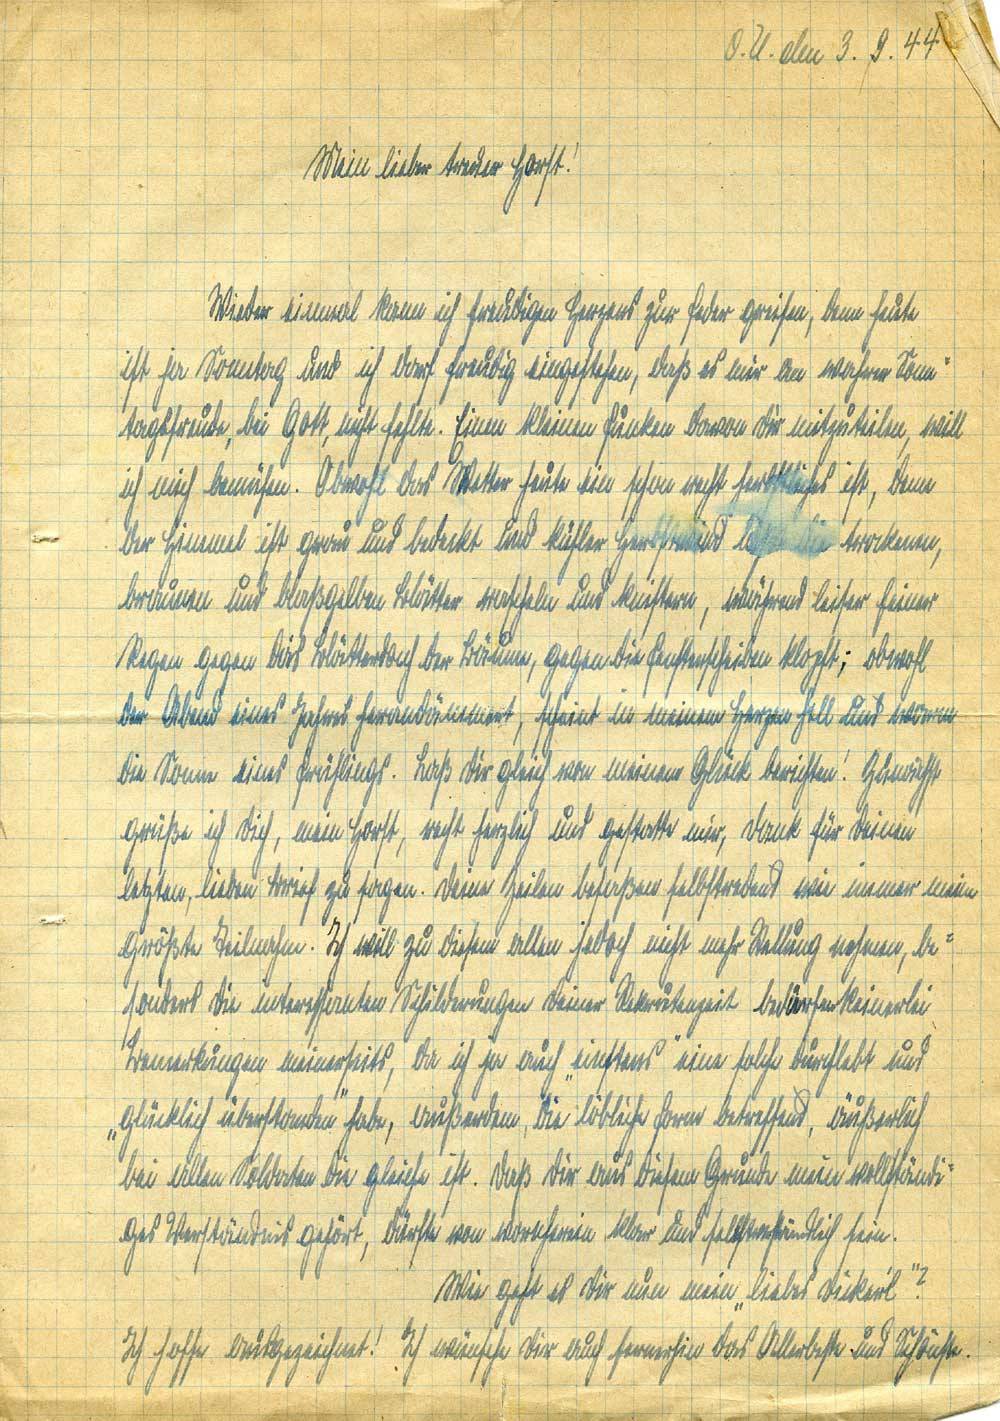 O.U. den 3. 9. 44
Mein lieber treuer Horst!
Wieder einmal kann ich freudigen Herzens zur Feder greifen, denn heute
ist ja Sonntag und ich darf freudig eingestehen, daß es mir an wahrer Sonn-
tagsfreude, bei Gott, nicht fehlte. Einen kleinen Funken davon Dir mitzuteilen, will
ich mich bemühen. Obwohl das Wetter heute ein schon recht herbstliches ist, denn
der Himmel ist grau und bedeckt und kühler Herbstwind läßt die trockenen,
braunen und blaßgelben Blätter rascheln und knistern, während leiser feiner
Regen gegen das Blätterdach der Bäume, gegen die Fensterscheiben klopft; obwohl
der Abend eines Jahres herandämmert, scheint in meinem Herzen hell und warm
die Sonne eines Frühlings. Laß Dir gleich von meinem Glück berichten! Zunächst
grüße ich Dich, mein Horst, recht herzlich und gestatte mir, Dank für Deinen
letzten, lieben Brief zu sagen. Deine Zeilen besaßen selbstredend wie immer mein
größte Teilnahm. Ich will zu diesem allen jedoch nicht mehr Stellung nehmen, be-
sonders die interessanten Schilderungen Deiner Rekrutenzeit bedürfen keinerlei
Bemerkungen meinerseits, da ich ja auch „einstens" eine solche durchlebt und
„glücklich überstanden" habe, außerdem, die löbliche Form betreffend, äußerlich
bei allen Soldaten die gleiche ist. Daß Dir aus diesem Grunde mein vollständi-
ges Verständnis gehört, dürfte von vornherein klar und selbstverständlich sein.
Wie geht es Dir nun mein „liebes Dickerl"?
Ich hoffe ausgezeichnet! Ich wünsche Dir auch fernerhin das Allerbeste und Schönste.